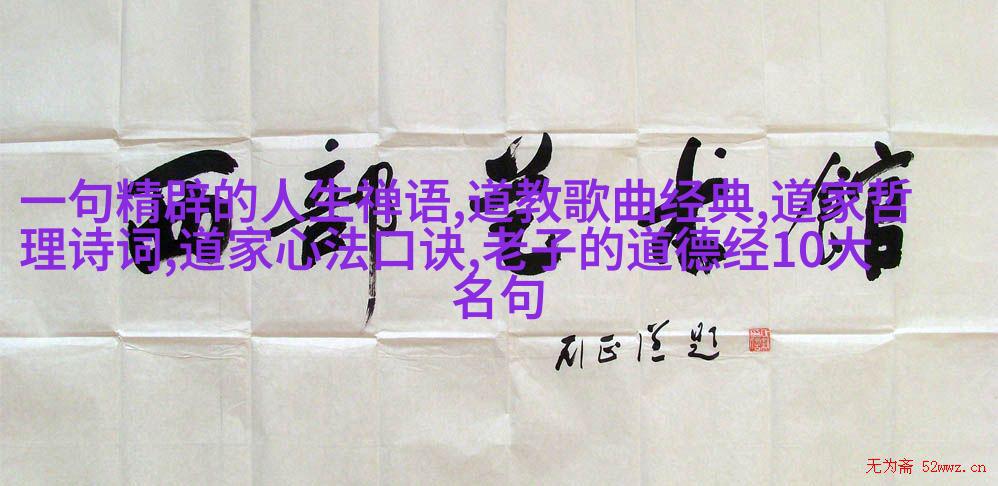 西部艺术馆
一句精辟的人生禅语,道教歌曲经典,道家哲
理诗词,道家心法口诀,老子的道德经10大
名句
题
无为斋 52wwz.cn